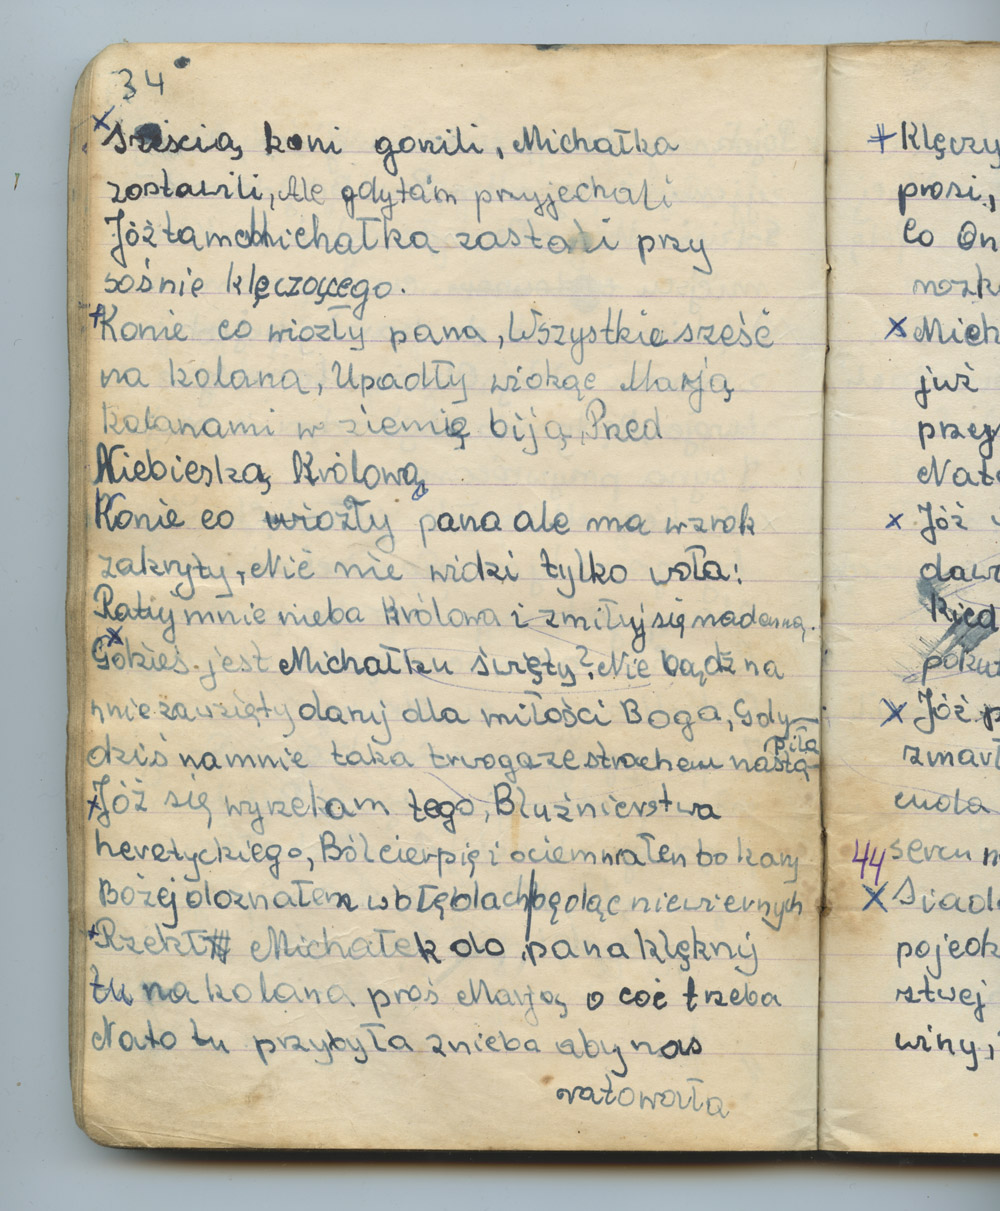 34
x Sześcią koni gonili, Michałka
zostawili, Ale gdy tam przyjechali
Jóż tam Michałka zastali przy
sośnie klęczącego.
x Konie co wiozły pana, Wszystkie sześć
na kolana, Upadły widząc Marją
kolanami w ziemię biją, Pred
Niebieską Królową
Konie co wiozły pana ale ma wzrok
zakryty, Nić nie widzi tylko woła:
Ratuj mnie nieba Królowa i zmiłuj się nademną.
x Gdzieś jest Michałku święty? Nie bądź na
mnie zawzięty daruj dla miłości Boga, Gdy
dziś na mnie taka trwoga ze strachem nastą-
piła
x Jóż się wyrzekam tego, Bluźnierstwa
heretyckiego, Ból cierpię i ociemniałem bo kary
Bożej doznałem w błędach będąc niewiernych
x Rzekł Michałek do pana klęknij
tu na kolana proś Marją o coć trzeba
Nato tu przybyła z nieba aby nas
ratowała
# Klęczy
prosi,
Co On
nozk
x Mich
już
przy
Nato
x Jóż
daw
Kied
poku
x Jóż p
zmarł
cuda
44
sercu
x Siad
pojedz
rtwej
winy,